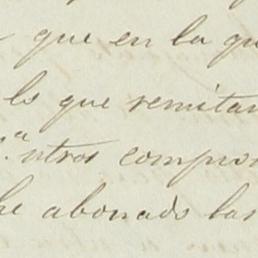 que en la qu
ls que remitan
ntros compro
he abonado las